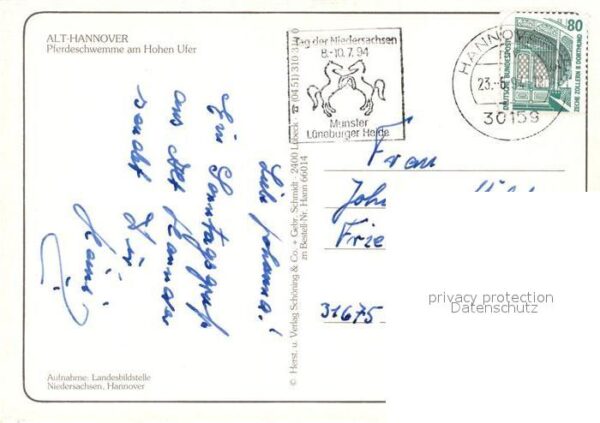 ALT-HANNOVER
Pferdeschwemme am Hohen Ufer
Tag der Niedersachsen
8.-10.7.94
Munster
Lüneburger Heide
HANNOVER
23.-6.94
30159
80
DEUTSCHE BUNDESPOST
ZECHE ZOLLERN II DORTMUND
Liebe Johanna!
Ein Sonntagsgruß
aus Alt Hannover
sendet Dir
© Herst. u. Verlag Schöning & Co. + Gebr. Schmidt · 2400 Lübeck · ☎ (04 51) 310 31 0
zu Bestell-Nr. Hann 66014
Frau
31675
privacy protection
Datenschutz
Aufnahme: Landesbildstelle
Niedersachsen, Hannover